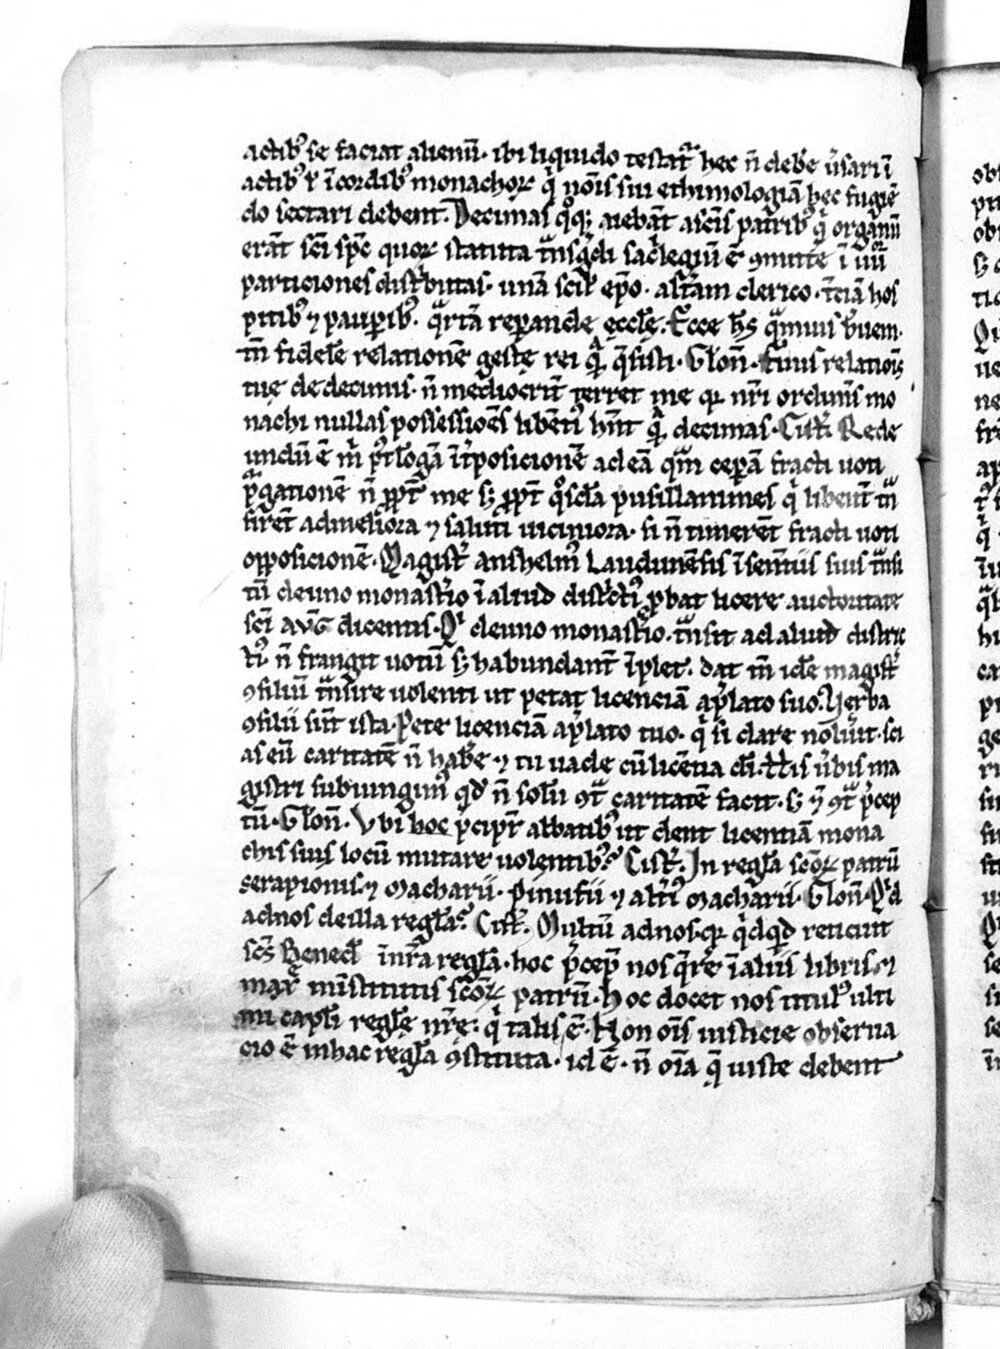 actib᷒ se faciat alienū· ibi liquido testat᷑ hec n̄ deb̄e u̓sari ī
actib᷒ ⁊ ī cordib᷒ monachoꝝ q̇ nōis sui ethimologiā hec fugiē
do sectari debent· Decimas q̊q; aiebāt a sc̄is patrib᷒ q̇ organū
erāt sc̄i sp̄c quoꝝ statuta tͣnsg̈di sac̓legiū ē ꝯmune ī iiiior
particiones distͥbutas· unā scil᷑ ep̄o· alt̓am clerico· t̓ciā hos
pitib᷒ ⁊ paup̱ib᷒· qͣrtā rep̱ande ęccl̄ę· Ecce h̄s qͣmuis b̓uem·
tn̄ fidelē relationē gestę rei qͣ q̄sisti· Glōn· Huius relatiōis
tuę de decimis· n̄ mediocrit᷑ terret me qꝫ nr̄i ordinis mo
nachi nullas possessiōes libēti᷒ hn̄t qͣ decimas· Cist̓· Rede
undū ē m̓ p᷒t lōgā īt̓posicionē ad eā qͣm cep̱ā fracti uoti
p̱gationē n̄ ꝓpt̓ me sꝫ ꝓpt̓ q̊sdā pusillanimes q̇ libent᷑ tͣn
sirēt ad meliora ⁊ saluti uiciniora· si n̄ timerēt fracti uoti
oꝓposicionē· Magist̓ anshelm᷒ Laudunēsis ī sentētiis suis tͣnsi
tū de uno monast̓io ī aliud distͥcti᷒ ꝓbat licere auctoritate
sc̄i aug̓ dicentis· Q̇ de uno monast̓io tͣnsit ad aliud distric
ti᷒ n̄ frangit uotū sꝫ habundant᷑ īplet· dat tn̄ idē magist̓
ꝯsiliū tͣnsire uolenti ut petat licenciā a p̄lato suo· Verba
ꝯsilii sūt ista· Pete licenciā a p̄lato tuo· q̇ si dare nolu̓it· sci
as eū caritatē n̄ hab̄e· ⁊ tu uade cū licētia dī· Illis u̓bis ma
gistri subiungim᷒ qd̓ n̄ solū ꝯͣ caritatē facit· sꝫ ⁊ ꝯͣ p̄cep
tū· Glōn· Vbi hoc p̄cipit᷑ abbatib᷒ ut dent licentiā mona
chis suis locū mutare uolentib᷒? Cist̓· In regl̄a sc̄oꝝ patrū
serapionis· ⁊ macharii· pinufii ⁊ alt̓i᷒ macharii· Glōn· Q̇d
ad nos de illa regl̄a? Cist̓· Multū ad nos· qꝫ q̇dq̇d reticuit
sc̄s Bened̄ in nr̄a regl̄a· hoc p̄cep̄ nos q̄rere ī aliis libris· ⁊
max̄ in īstitutis sc̄oꝝ patrū· Hoc docet nos titul᷒ ulti
mi capl̄i regl̄ę nr̄ę· q̇ talis ē· Non ōis iusticie obserua
cio ē in hac regl̄a ꝯstituta· id ē· n̄ oīa q̄ iuste debent